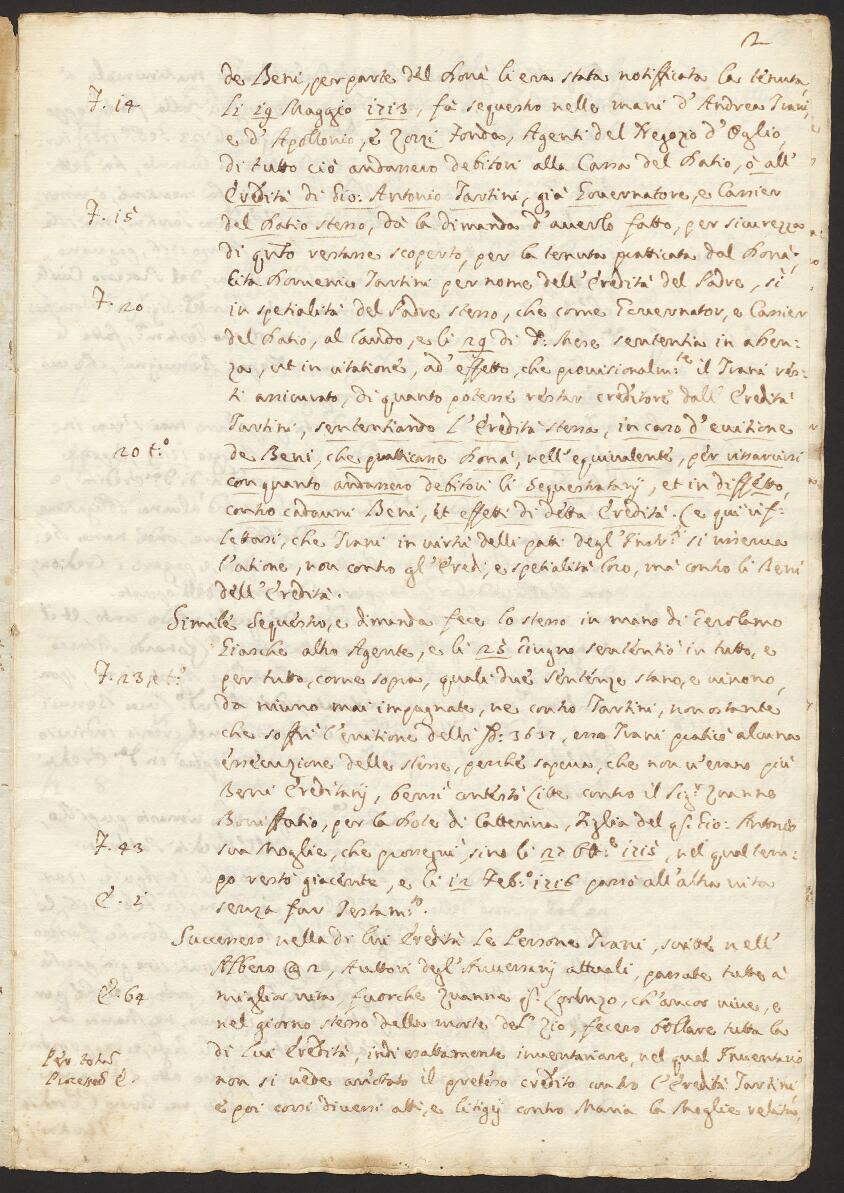 2
de Beni, per parte del Donà li era stata notifficata la tenuta,
F. 14 Li 19 Maggio 1713, fà sequestro nelle mani d'Andrea Trani,
e d'Apollonio, e Zorzi Fonda, Agenti del Negozo d'Oglio,
di tutto ciò andassero debitori alla Cassa del Datio, ò all'
Eredità di Gio: Antonio Tartini, già Governatore, e Cassier
F. 15 del Datio stesso, dà la dimanda d'averlo fatto, per sicurezza
di qnto restasse scoperto, per la tenuta pratticata dal Donà,
cita Domenico Tartini per nome dell'Eredità del Padre, sì
F. 20 in spetialità del Padre stesso, che come Governator, e Cassier
del Datio, al Laudo, e li 29 di d:o Mese sententia in absen-
za, ut in citatione, ad'effetto, che provisionalm:te il Trani res-
ti assicurato, di quanto potesse restar creditore dall'Eredità
Tartini, sententiando l'Eredità stessa, in caso d'evitione
20 t:o de Beni, che pratticasse Donà, nell'equivalente, per rissarcirsi
con quanto andassero debitori li Sequestratarij, et in diffetto,
contro cadauni Beni, et effetti di detta Eredità. (e qui rif-
lettasi, che Trani in virtù delli patti degl'Instr:ti si riserva
l'atione, non contro gl'Eredi, e spetialità loro, mà contro li Beni
dell'Eredità.
Simile Sequestro, e dimanda fece lo stesso in mano di Gerolamo
Giasche altro Agente, e li 25 Giugno sententiò in tutto, e
F. 23, e t:o per tutto, come sopra, quali due sentenze stano, e vivono,
da niuno mai impugnate, ne contro Tartini, nonostante
che soffrì l'evitione delli D: 3637, esso Trani praticò alcuna
essecuzione delle stesse, perchè sapeva, che non v'erano più
Beni Ereditarij, bensì contestò Lite contro il Sig:r Zuanne
Boniffatio, per la Dote di Catterina, Figlia del q: Gio: Antonio
F. 43 sua Moglie, che prosseguì sino li 27 8b:e 1715, nel qual tem-
po restò giacente, e li 12 Feb:o 1716 passò all'altra vita
E. 1 senza far Testam:to.
Successero nella di lui Eredità le Persone Trani, scritte nell'
Albero @ 2, Auttori degl'Aversarij attuali, passate tutte à
E. 64 miglior vita, fuorche Zuanne q: Lorenzo, ch'ancor vive, e
nel giorno stesso della morte del Zio, fecero bollare tutta la
Per totum di Lui Eredità, indi esattamente inventariare, nel qual Inventario
Processo E. non si vede anotato il preteso credito contro l'Eredità Tartini
e poi corsi diversi atti, e litigij contro Maria la Moglie relitta,